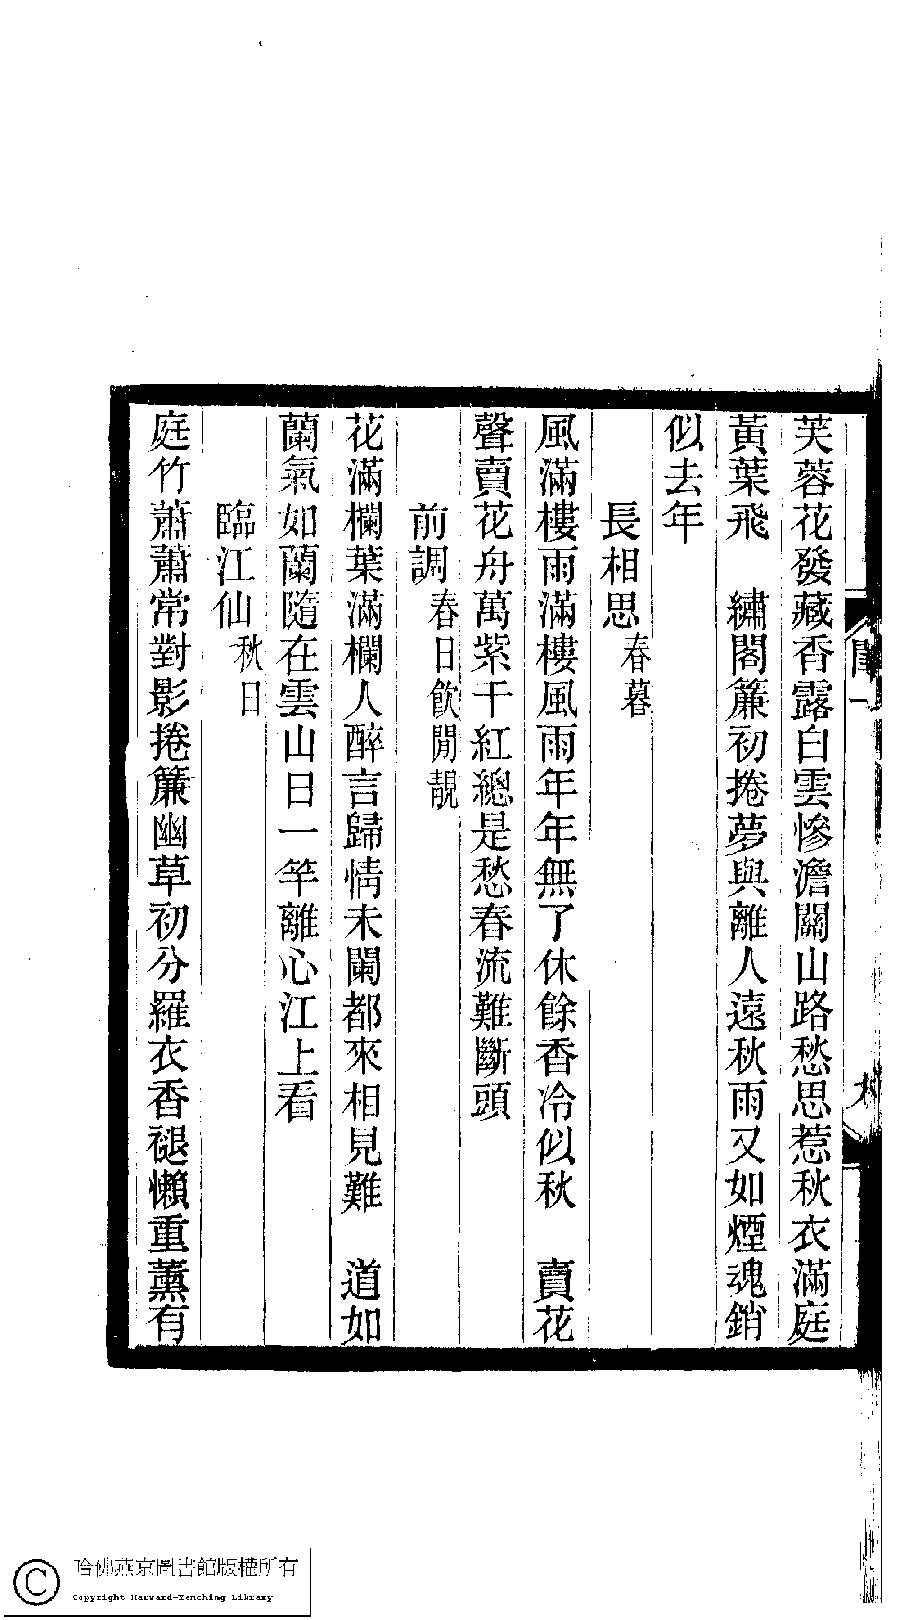 芙蓉花發藏香露白雲慘澹關山路愁思惹秋衣滿庭
黃葉飛　繡閣簾初捲夢與離人遠秋雨又如煙魂銷
似去年
長相思春暮
風滿樓雨滿樓風雨年年無了休餘香冷似秋　賣花
聲賣花舟萬紫千紅總是愁春流難斷頭
前調春日飲閒靚
花滿欄葉滿欄人醉言歸情未闌都來相見難　道如
蘭氣如蘭隨在雲山日一竿離心江上看
臨江仙秋日
庭竹蕭蕭常對影捲簾幽草初分羅衣香褪懶重薰有
哈佛燕京圖書館版權所有
Copyright Harvard-Yenching Library